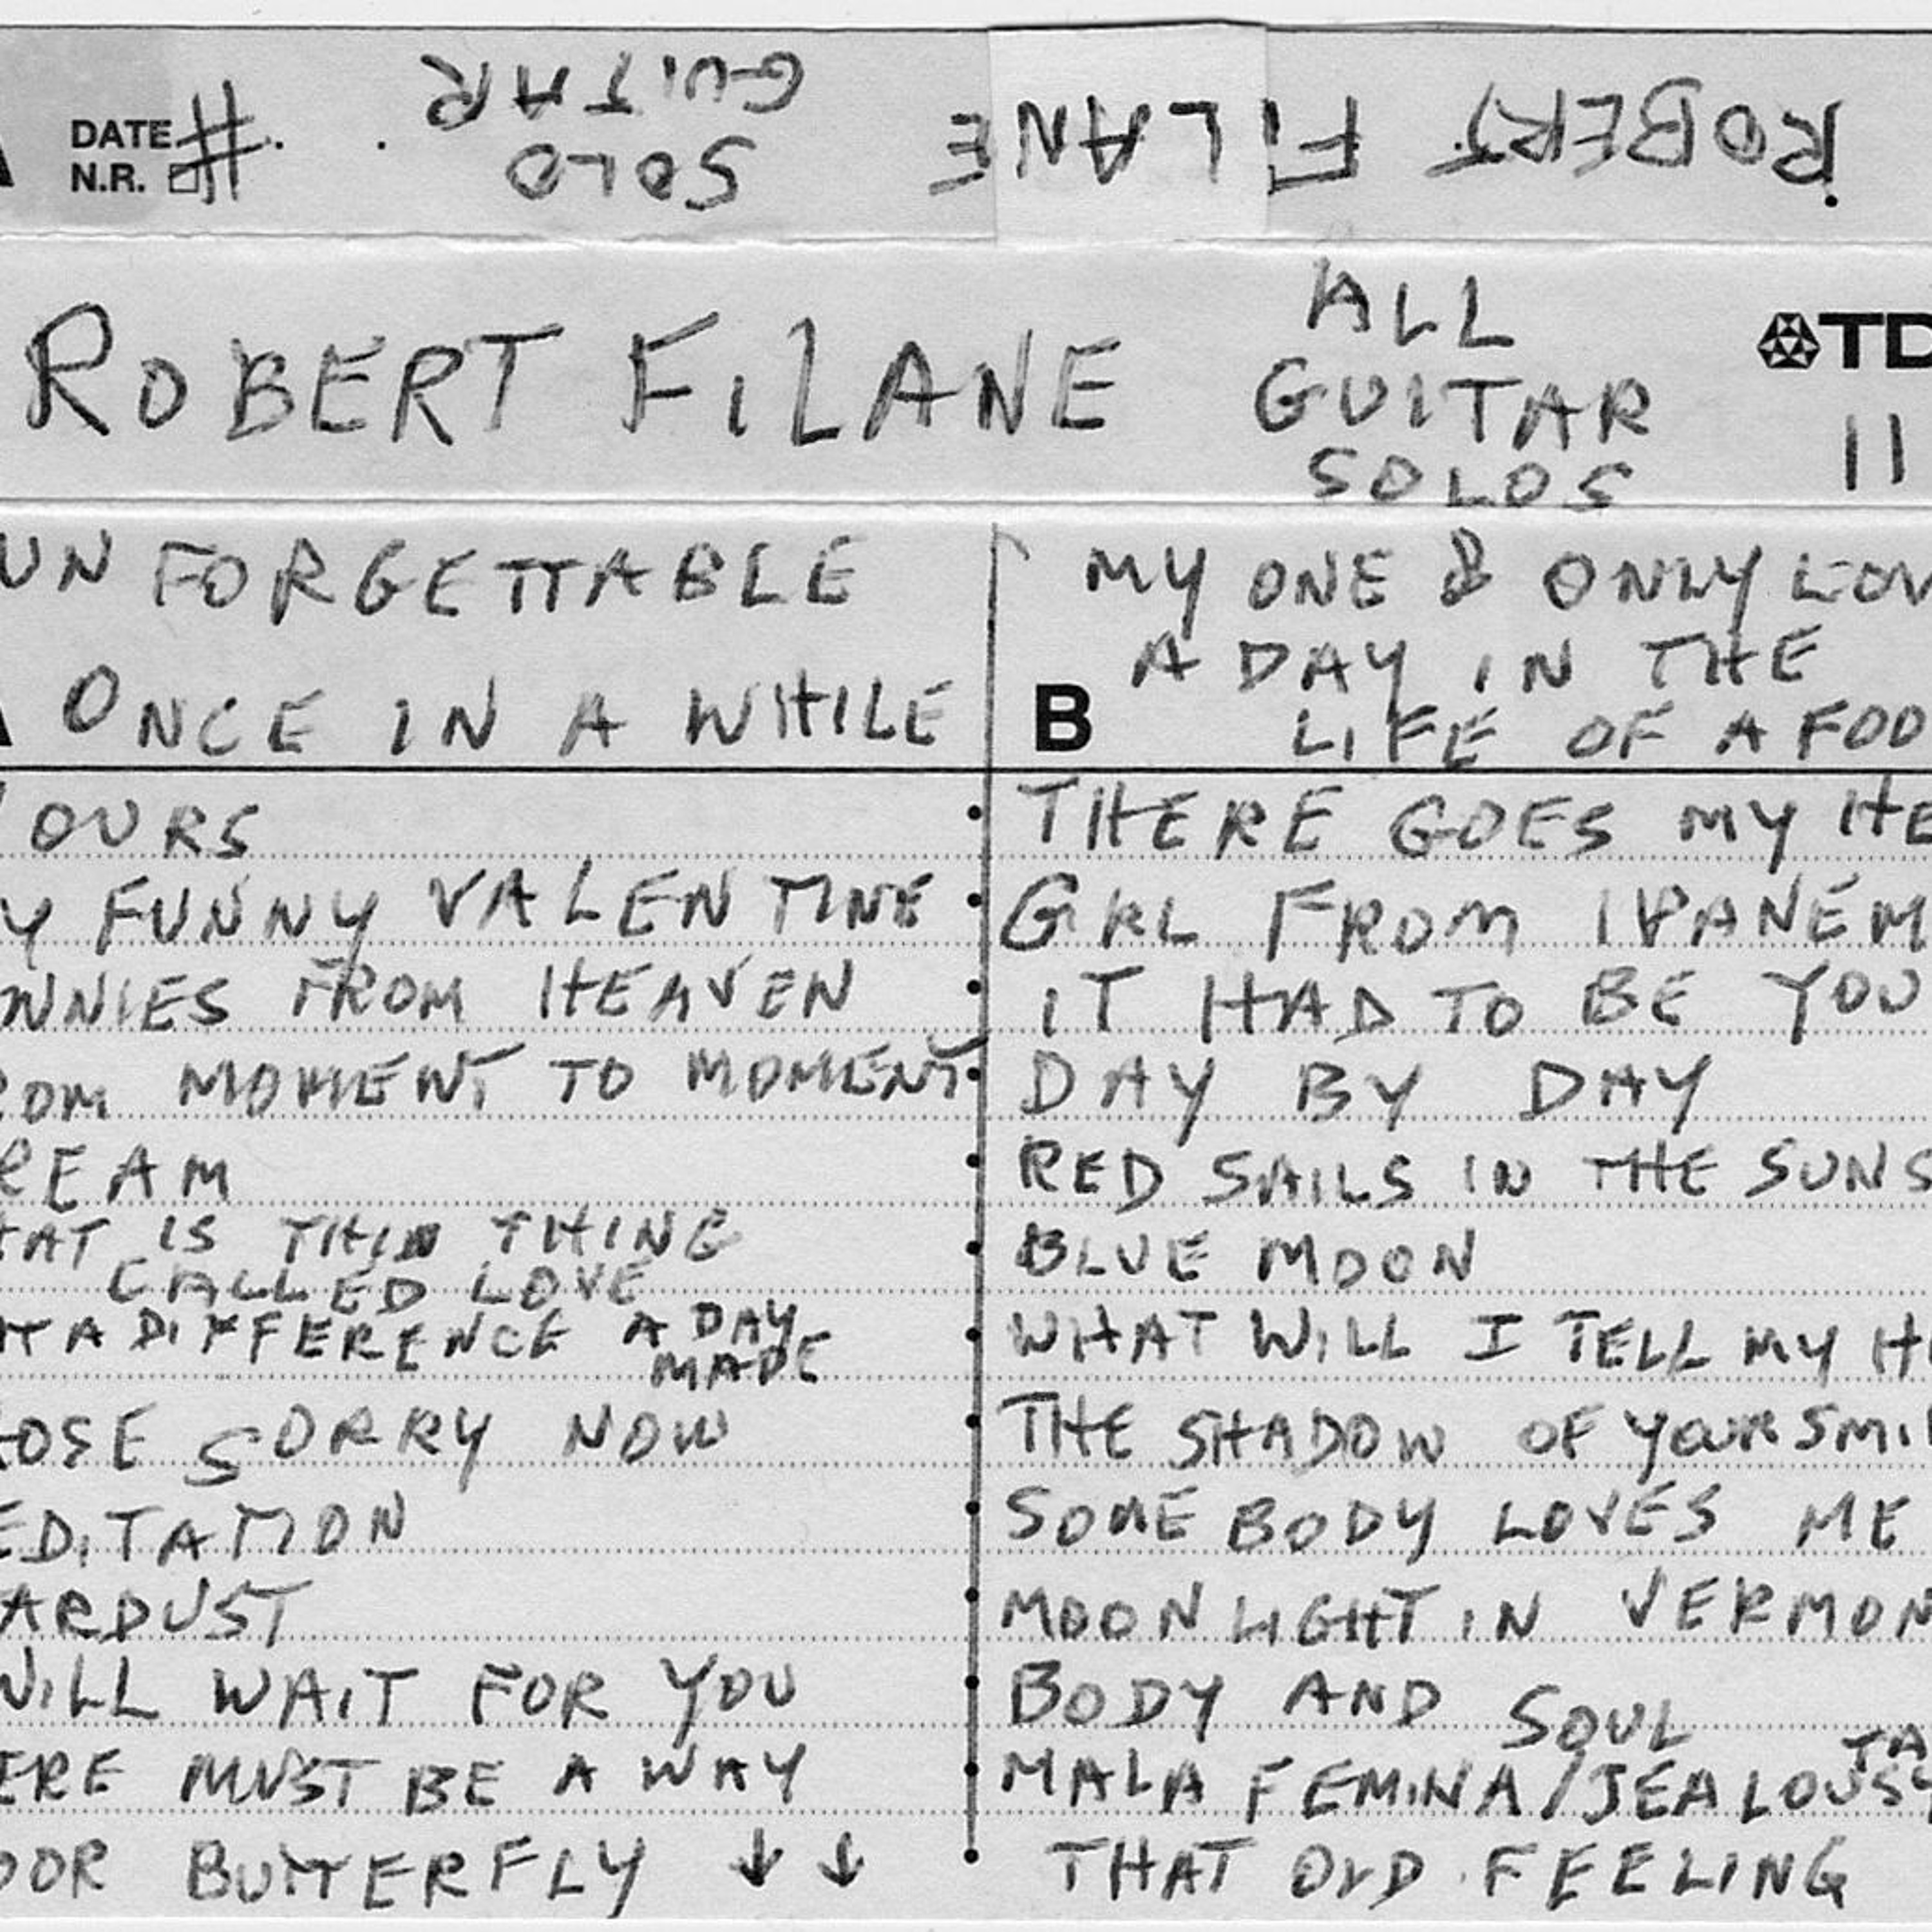 DATE #
N.R.
GUITAR
SOLO
ROBERT FILANE
ROBERT FILANE
ALL
GUITAR
SOLOS
TD
11
UNFORGETTABLE
ONCE IN A WHILE
B
MY ONE & ONLY LOV
A DAY IN THE
LIFE OF A FOO
OURS
Y FUNNY VALENTINE
NNIES FROM HEAVEN
ROM MOMENT TO MOMENT
REAM
HAT IS THIS THING
CALLED LOVE
AT A DIFFERENCE A DAY
MADE
HOSE SORRY NOW
EDITATION
ARDUST
WILL WAIT FOR YOU
ERE MUST BE A WAY
OOR BUTTERFLY ↓ ↓
THERE GOES MY HE
GIRL FROM IPANEM
IT HAD TO BE YOU
DAY BY DAY
RED SAILS IN THE SUNS
BLUE MOON
WHAT WILL I TELL MY H
THE SHADOW OF YOUR SMI
SOMEBODY LOVES ME
MOONLIGHT IN VERMON
BODY AND SOUL
TA
MALA FEMINA/JEALOUSY
THAT OLD FEELING